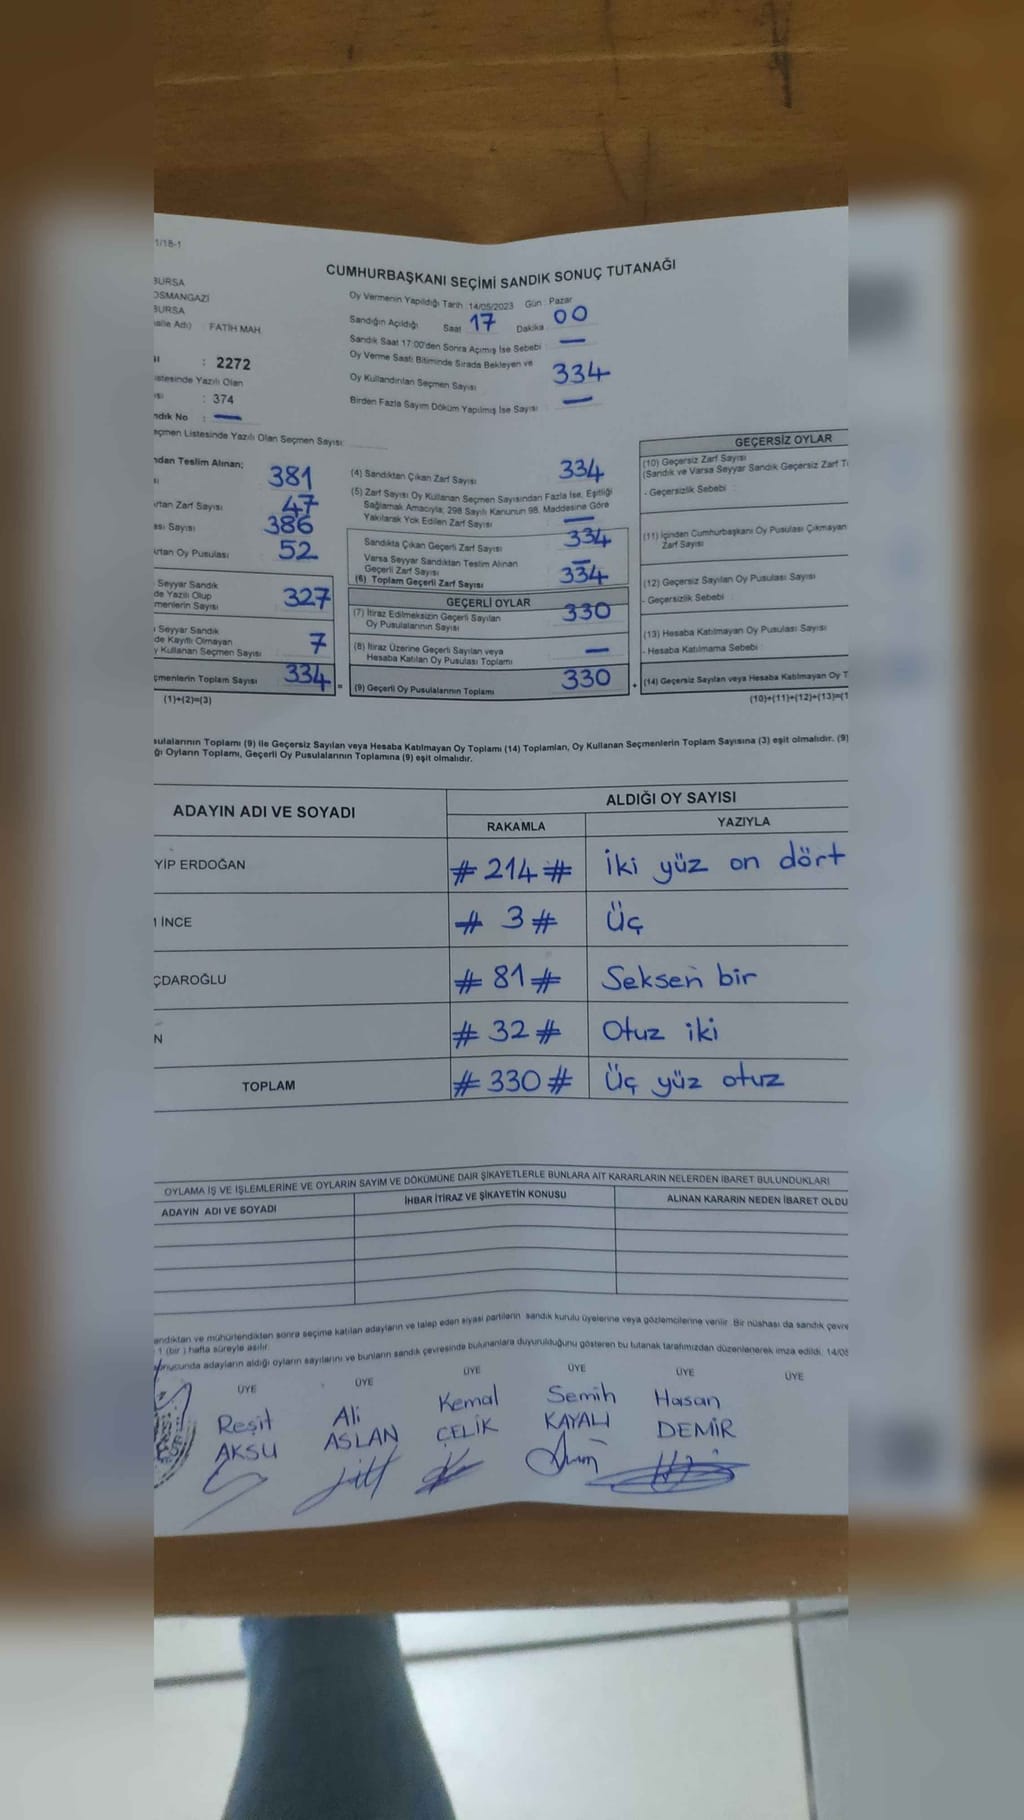 1/18-1
CUMHURBAŞKANI SEÇİMİ SANDIK SONUÇ TUTANAĞI
BURSA
OSMANGAZİ
BURSA
FATİH MAH.
Oy Vermenin Yapıldığı Tarih : 14/05/2023 Gün : Pazar
Sandığın Açıldığı Saat 17 Dakika 00
Sandık Saat 17:00'den Sonra Açımış İse Sebebi : —
Oy Verme Saati Bitiminde Sırada Bekleyen ve
Oy Kullandırılan Seçmen Sayısı 334
Birden Fazla Sayım Döküm Yapılmış İse Sayısı : —
: 2272
istesinde Yazılı Olan
: 374
ndık No : —
eçmen Listesinde Yazılı Olan Seçmen Sayısı:
ndan Teslim Alınan;
381
rtan Zarf Sayısı 47
ası Sayısı 386
Artan Oy Pusulası 52
Seyyar Sandık
de Yazılı Olup
menlerin Sayısı 327
Seyyar Sandık
de Kayıtlı Olmayan
y Kullanan Seçmen Sayısı 7
çmenlerin Toplam Sayısı 334 =
(1)+(2)=(3)
(4) Sandıktan Çıkan Zarf Sayısı 334
(5) Zarf Sayısı Oy Kullanan Seçmen Sayısından Fazla İse, Eşitliği
Sağlamak Amacıyla; 298 Sayılı Kanunun 98. Maddesine Göre
Yakılarak Yok Edilen Zarf Sayısı —
Sandıkta Çıkan Geçerli Zarf Sayısı 334
Varsa Seyyar Sandıktan Teslim Alınan
Geçerli Zarf Sayısı —
(6) Toplam Geçerli Zarf Sayısı 334
GEÇERLİ OYLAR
(7) İtiraz Edilmeksizin Geçerli Sayılan
Oy Pusulalarının Sayısı 330
(8) İtiraz Üzerine Geçerli Sayılan veya
Hesaba Katılan Oy Pusulası Toplamı —
(9) Geçerli Oy Pusulalarının Toplamı 330 +
GEÇERSİZ OYLAR
(10) Geçersiz Zarf Sayısı
(Sandık ve Varsa Seyyar Sandık Geçersiz Zarf T
- Geçersizlik Sebebi :
(11) İçinden Cumhurbaşkanı Oy Pusulası Çıkmayan
Zarf Sayısı
(12) Geçersiz Sayılan Oy Pusulası Sayısı
- Geçersizlik Sebebi :
(13) Hesaba Katılmayan Oy Pusulası Sayısı
- Hesaba Katılmama Sebebi :
(14) Geçersiz Sayılan veya Hesaba Katılmayan Oy T
(10)+(11)+(12)+(13)=(1
sulalarının Toplamı (9) ile Geçersiz Sayılan veya Hesaba Katılmayan Oy Toplamı (14) Toplamları, Oy Kullanan Seçmenlerin Toplam Sayısına (3) eşit olmalıdır. (9)
ğı Oyların Toplamı, Geçerli Oy Pusulalarının Toplamına (9) eşit olmalıdır.
ADAYIN ADI VE SOYADI
ALDIĞI OY SAYISI
RAKAMLA YAZIYLA
YİP ERDOĞAN # 214 # İki yüz on dört
İNCE # 3 # Üç
ÇDAROĞLU # 81 # Seksen bir
N # 32 # Otuz iki
TOPLAM # 330 # Üç yüz otuz
OYLAMA İŞ VE İŞLEMLERİNE VE OYLARIN SAYIM VE DÖKÜMÜNE DAİR ŞİKAYETLERLE BUNLARA AİT KARARLARIN NELERDEN İBARET BULUNDUKLARI
ADAYIN ADI VE SOYADI İHBAR İTİRAZ VE ŞİKAYETİN KONUSU ALINAN KARARIN NEDEN İBARET OLDU
andıktan ve mühürlendikten sonra seçime katılan adayların ve talep eden siyasi partilerin sandık kurulu üyelerine veya gözlemcilerine verilir. Bir nüshası da sandık çevre
1 (bir ) hafta süreyle asılır.
onucunda adayların aldığı oyların sayılarını ve bunların sandık çevresinde bulunanlara duyurulduğunu gösteren bu tutanak tarafımızdan düzenlenerek imza edildi. 14/05
ÜYE ÜYE ÜYE ÜYE ÜYE ÜYE
Reşit Ali Kemal Semih Hasan
AKSU ASLAN ÇELİK KAYALI DEMİR